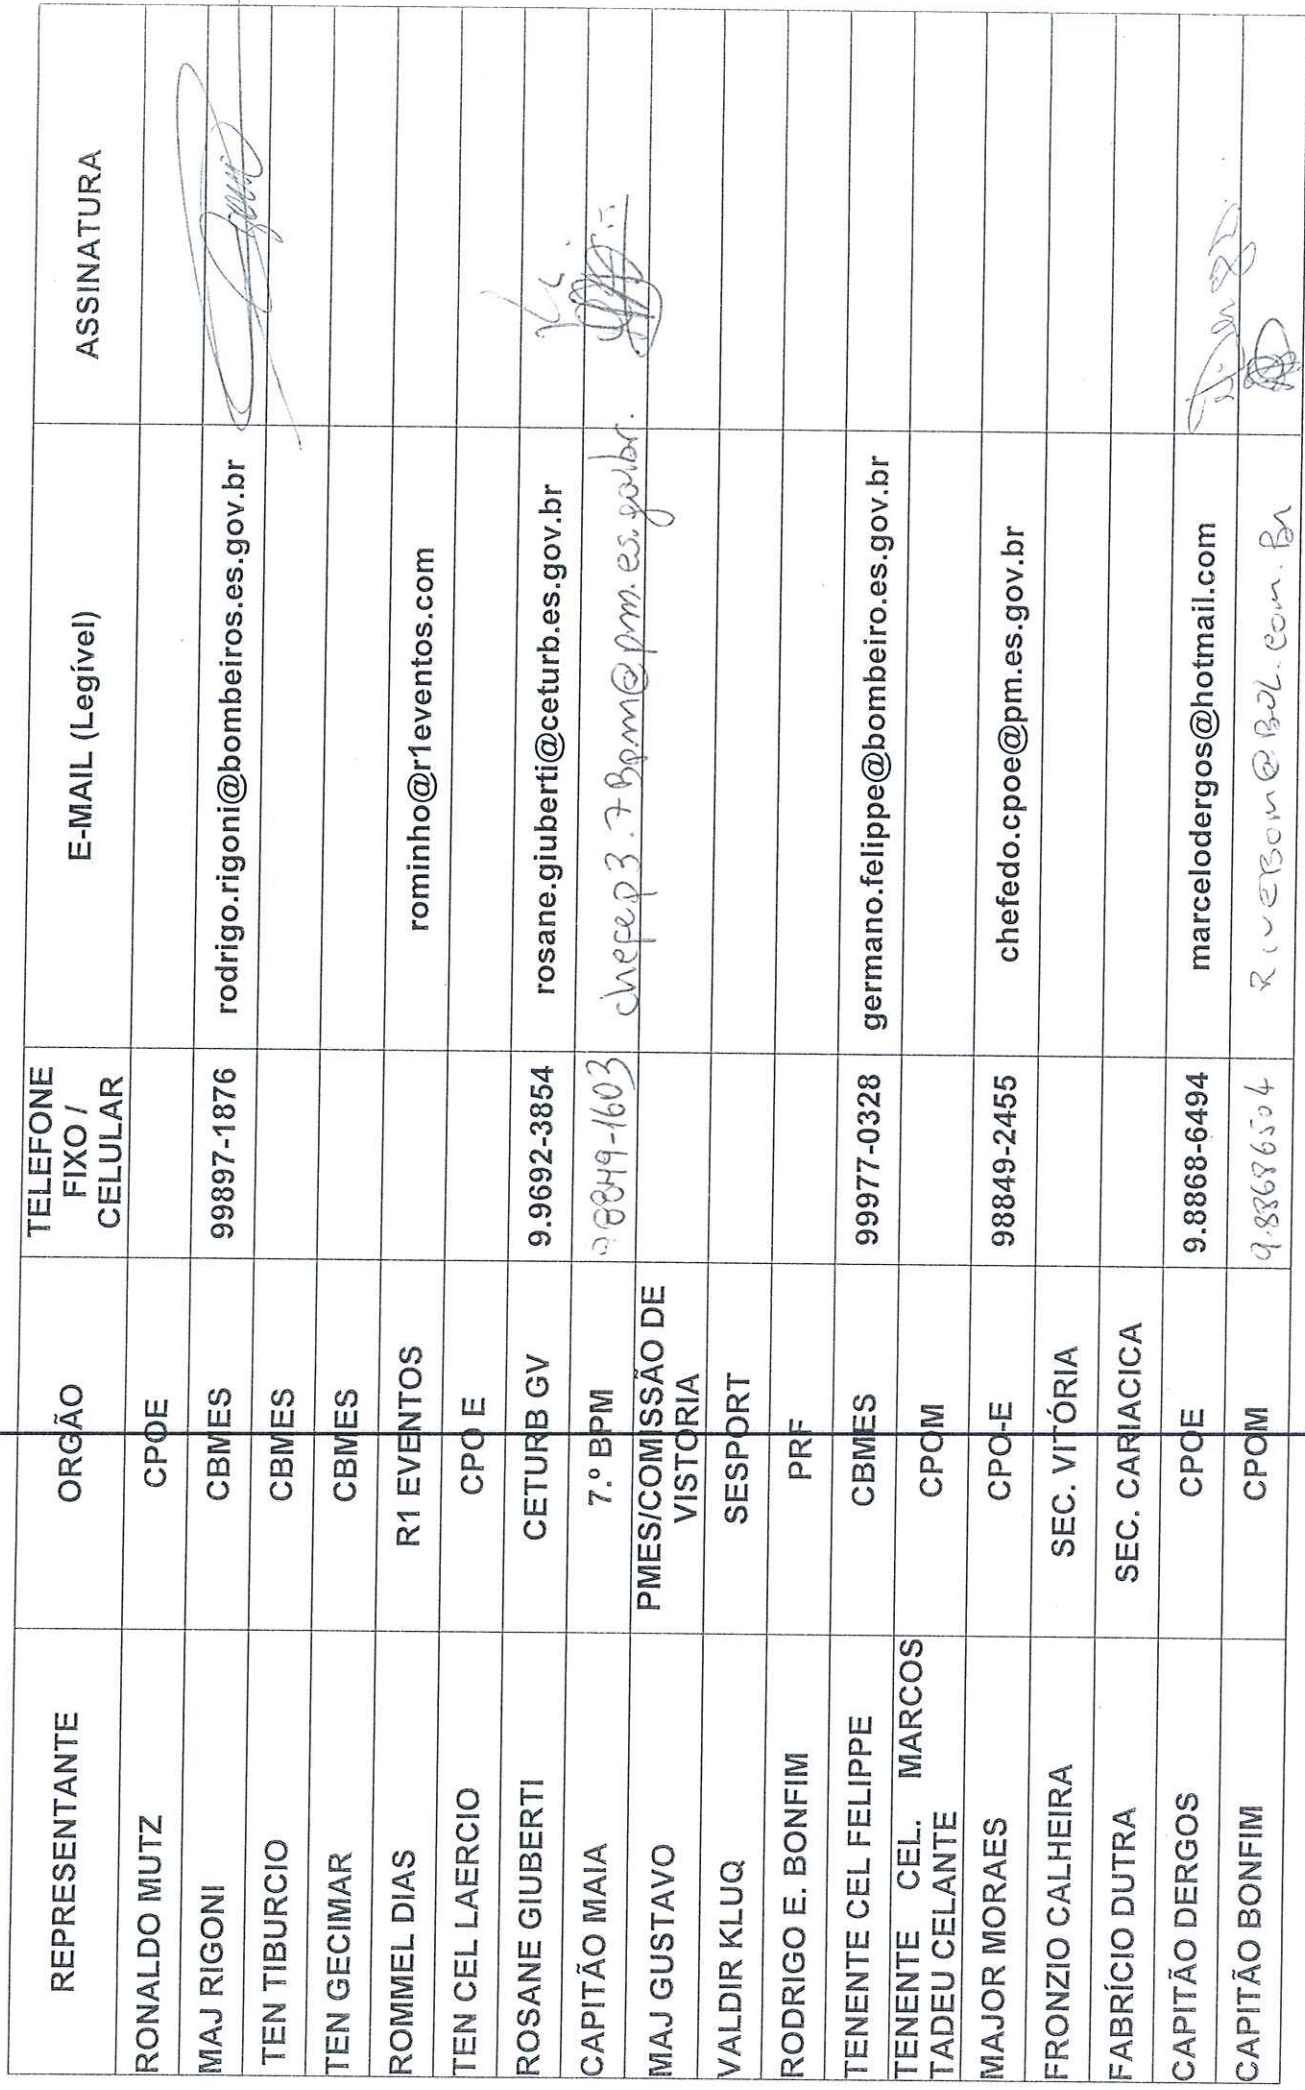 REPRESENTANTE ORGÃO TELEFONE FIXO / CELULAR E-MAIL (Legível) ASSINATURA
RONALDO MUTZ CPOE
MAJ RIGONI CBMES 99897-1876 rodrigo.rigoni@bombeiros.es.gov.br
TEN TIBURCIO CBMES
TEN GECIMAR CBMES
ROMMEL DIAS R1 EVENTOS rominho@r1eventos.com
TEN CEL LAERCIO CPO E
ROSANE GIUBERTI CETURB GV 9.9692-3854 rosane.giuberti@ceturb.es.gov.br
CAPITÃO MAIA 7.º BPM 98849-1603 chefep3.7Bpm@pm.es.gov.br.
MAJ GUSTAVO PMES/COMISSÃO DE VISTORIA
VALDIR KLUQ SESPORT
RODRIGO E. BONFIM PRF
TENENTE CEL FELIPPE CBMES 99977-0328 germano.felippe@bombeiro.es.gov.br
TENENTE CEL. MARCOS TADEU CELANTE CPOM
MAJOR MORAES CPO-E 98849-2455 chefedo.cpoe@pm.es.gov.br
FRONZIO CALHEIRA SEC. VITÓRIA
FABRÍCIO DUTRA SEC. CARIACICA
CAPITÃO DERGOS CPOE 9.8868-6494 marcelodergos@hotmail.com
CAPITÃO BONFIM CPOM 9.88686504 RIVERBOM@BOL.COM.BR